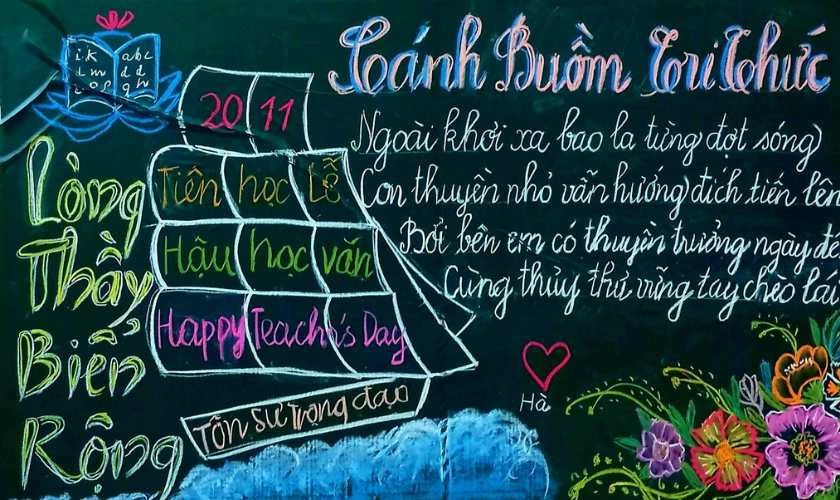 Cánh Buồm Tri Thức
i k a b c
l m d d
20 11
Ngoài khơi xa bao la từng đợt sóng
Con thuyền nhỏ vẫn hướng đích tiến lên
Bởi bên em có thuyền trưởng ngày
Cùng thủy thủ vững tay chèo
Lòng
Thầy
Biển
Rộng
Tiên học Lễ
Hậu học văn
Happy Teach's Day
Tôn sư trọng đạo
Hà